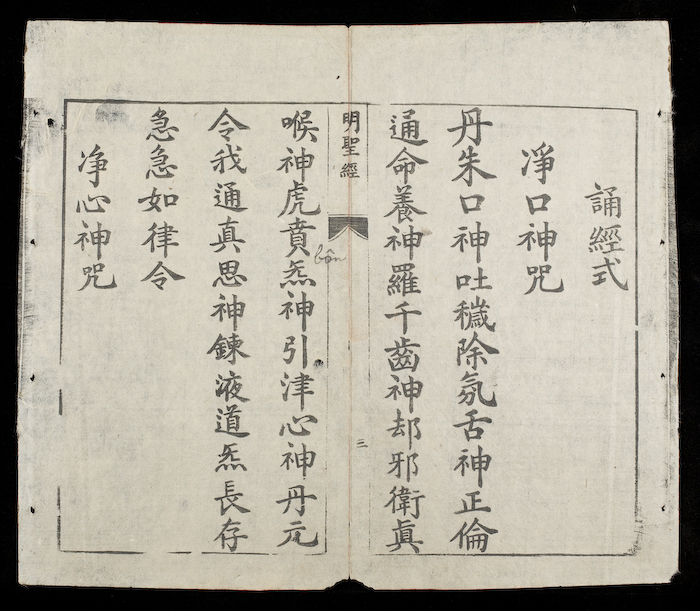 誦經式
淨口神咒
丹朱口神吐穢除氛舌神正倫
通命養神羅千齒神却邪衛眞
明聖經
三
bộn
喉神虎賁炁神引津心神丹元
令我通真思神鍊液道炁長存
急急如律令
净心神咒